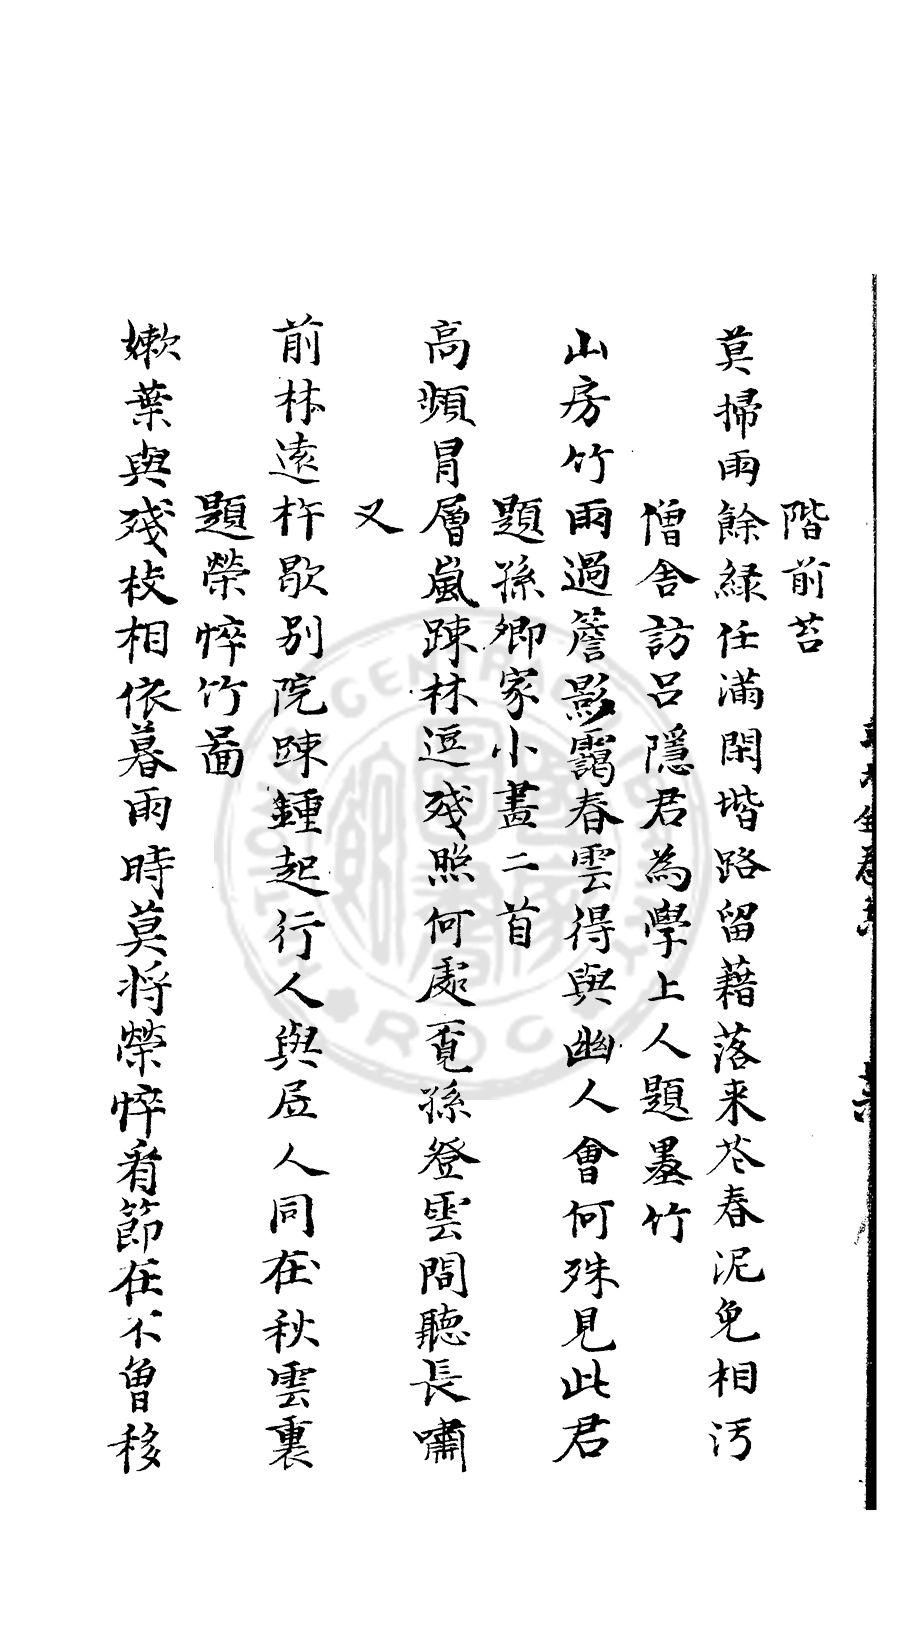 階前苔
莫掃雨餘緑任滿閑堦路留藉落来花春泥免相汚
僧舎訪吕隱君為學上人題墨竹
山房竹雨過簷影靄春雲得與幽人會何殊見此君
題孫卿家小畫二首
高頻冒層嵐踈林逗残照何處覓孫登雲間聽長嘯
又
前林遠杵歇别院踈鍾起行人與居人同在秋雲裏
題榮悴竹圖
嫰葉與残枝相依暮雨時莫将榮悴看節在不曾移